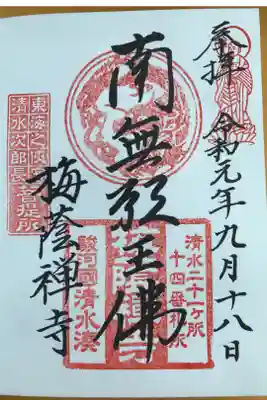 奉拝 令和元年九月十八日
南無願王佛
梅蔭禅寺
東海之侠
清水次郎長菩提所
清水二十一ヶ所
十四番札所
駿河國清水湊